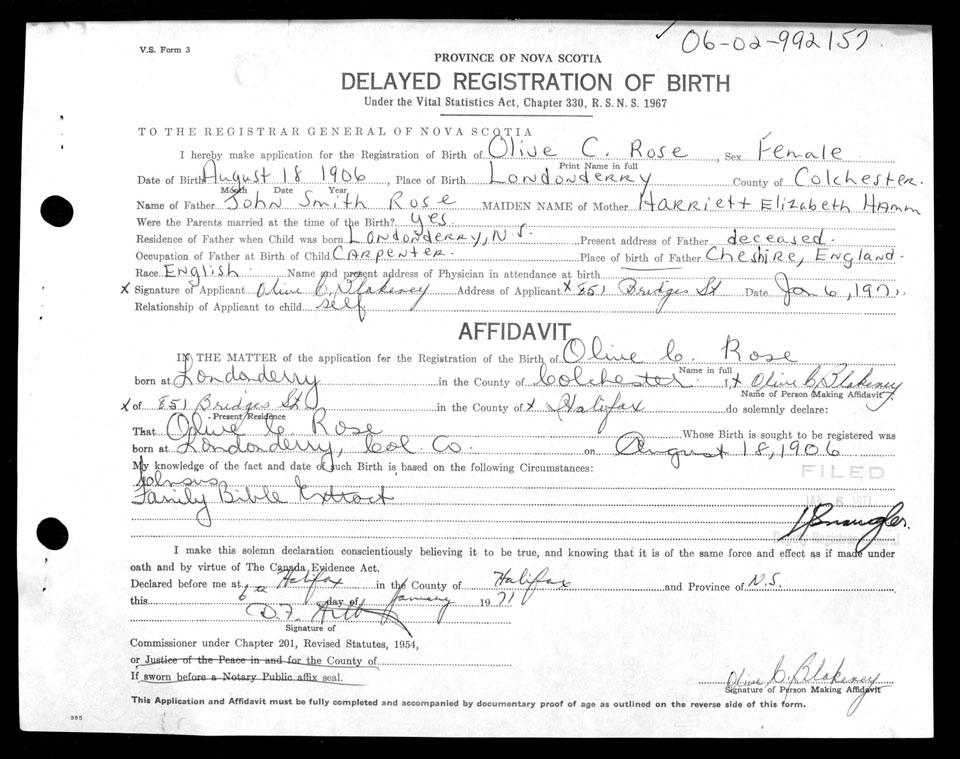 06-02-992157
V.S. Form 3
PROVINCE OF NOVA SCOTIA
DELAYED REGISTRATION OF BIRTH
Under the Vital Statistics Act, Chapter 330, R.S.N.S. 1967
TO THE REGISTRAR GENERAL OF NOVA SCOTIA
I hereby make application for the Registration of Birth of Olive C. Rose, Sex Female
Print Name in full
Date of Birth August 18 1906, Place of Birth Londonderry County of Colchester.
Month Date Year
Name of Father John Smith Rose MAIDEN NAME of Mother Harriett Elizabeth Hamm
Were the Parents married at the time of the Birth? yes
Residence of Father when Child was born Londonderry, N.S. Present address of Father deceased.
Occupation of Father at Birth of Child Carpenter. Place of birth of Father Cheshire, England.
Race English Name and present address of Physician in attendance at birth
x Signature of Applicant Olive C. Blakeney Address of Applicant x 851 Bridges St Date Jan 6, 1971.
Relationship of Applicant to child self
AFFIDAVIT
IN THE MATTER of the application for the Registration of the Birth of Olive C. Rose
Name in full
born at Londonderry in the County of Colchester I, x Olive C. Blakeney
Name of Person Making Affidavit
x of 851 Bridges St in the County of x Halifax do solemnly declare:
Present Residence
That Olive C. Rose Whose Birth is sought to be registered was
born at Londonderry, Col. Co. on August 18, 1906
My knowledge of the fact and date of such Birth is based on the following Circumstances:
FILED
Census
Family Bible Extract
JAN 6 1971
I make this solemn declaration conscientiously believing it to be true, and knowing that it is of the same force and effect as if made under
oath and by virtue of The Canada Evidence Act.
Declared before me at Halifax in the County of Halifax and Province of N.S.
this 6th day of January 1971
D.F.
Signature of
Commissioner under Chapter 201, Revised Statutes, 1954,
or Justice of the Peace in and for the County of
If sworn before a Notary Public affix seal.
Olive C. Blakeney
Signature of Person Making Affidavit
This Application and Affidavit must be fully completed and accompanied by documentary proof of age as outlined on the reverse side of this form.
385